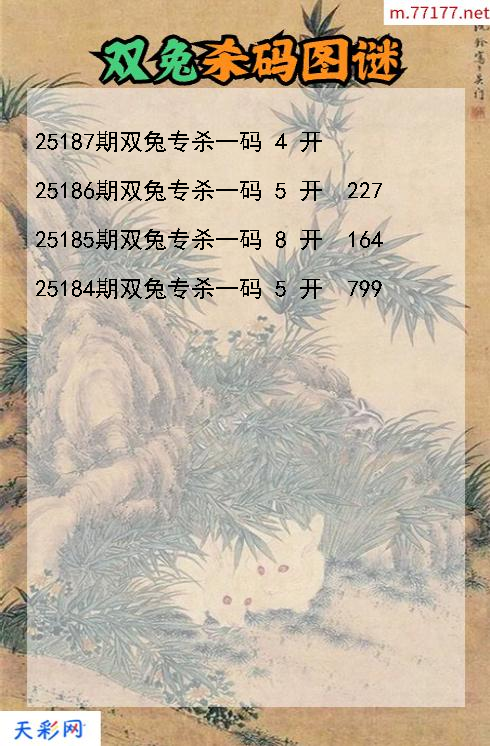 m.77177.net
双兔杀码图谜
25187期双兔专杀一码 4 开
25186期双兔专杀一码 5 开 227
25185期双兔专杀一码 8 开 164
25184期双兔专杀一码 5 开 799
天彩网